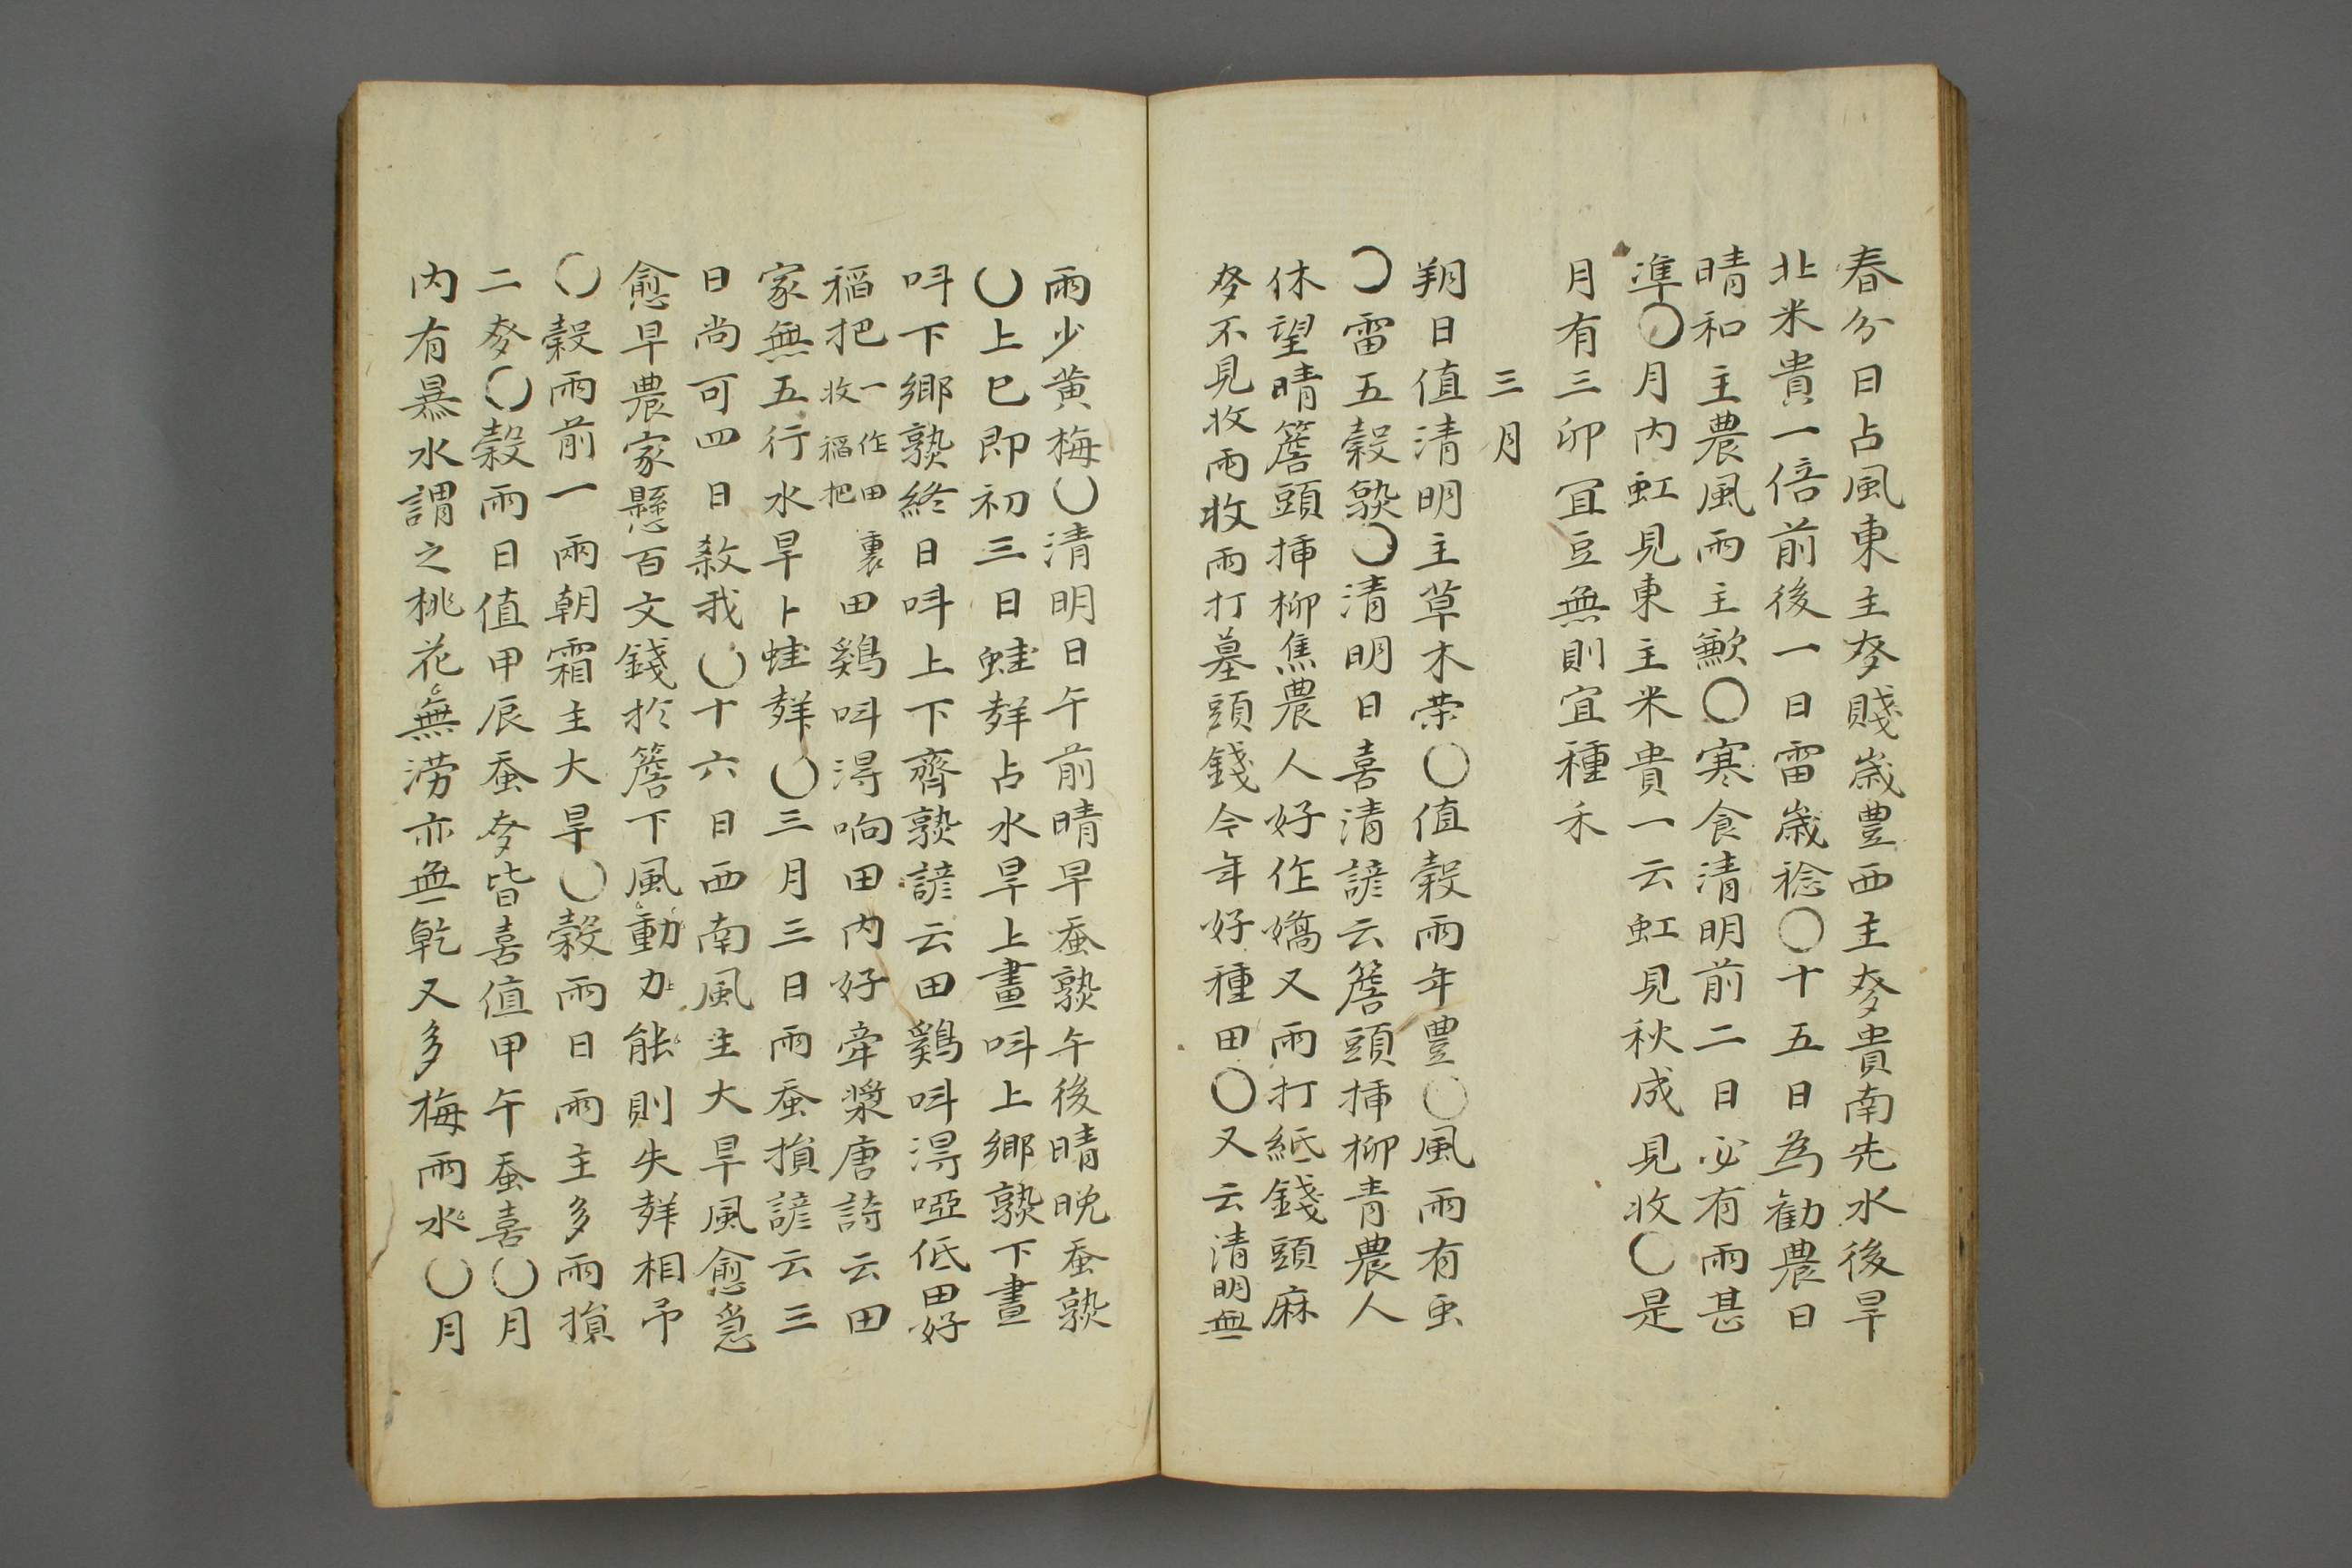 春分日占風東主麥賤歲豊西主麥貴南先水後旱
北米貴一倍前後一日雷歲稔〇十五日為勸農日
晴和主農風雨主歉〇寒食清明前二日必有雨甚
準〇月内虹見東主米貴一云虹見秋成見收〇是
月有三卯宜豆無則宜種禾
三月
朔日值清明主草木荣〇值穀雨年豊〇風雨有虫
〇雷五穀熟〇清明日喜清諺云簷頭挿柳青農人
休望晴簷頭挿柳焦農人好作嬌又雨打紙錢頭麻
麥不見收雨收雨打墓頭錢今年好種田〇又云清明無
雨少黄梅〇清明日午前晴早蚕熟午後晴晩蚕熟
〇上巳即初三日蛙声占水旱上晝呌上鄉熟下晝
呌下鄉熟終日呌上下齊熟諺云田鷄呌淂啞低田好
稲把一作田收稲把裏田鷄呌淂响田内好牽漿唐詩云田
家無五行水旱卜蛙声〇三月三日雨蚕損諺云三
日尚可四日殺我〇十六日西南風主大旱風愈急
愈旱農家懸百文錢於簷下風動力能則失声相吊
〇穀雨前一兩朝霜主大旱〇穀雨日雨主多雨損
二麥〇穀雨日值甲辰蚕麥皆喜值甲午蚕喜〇月
内有暴水謂之桃花無澇亦無乾又多梅雨水〇月